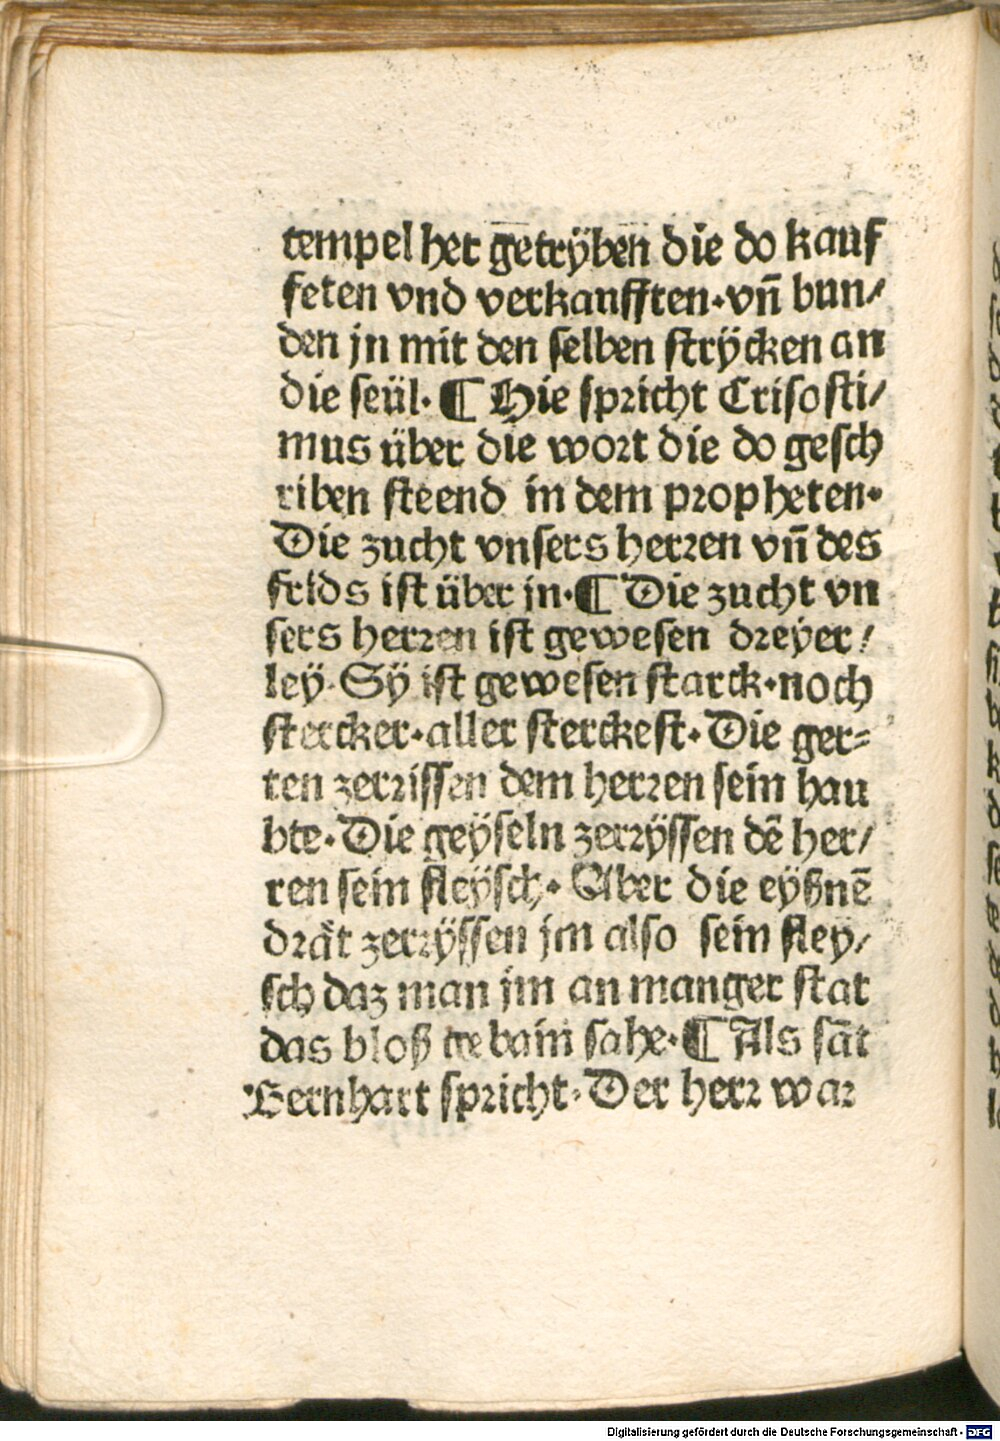 tempel het getryben die do kauf
feten vnd verkaufften·vn̄ bun/
den jn mit den selben strÿcken an
die seül·¶ Hie spricht Crisosti/
mus über die wort die do gesch
riben steend in dem propheten·
Die zucht vnsers herren vn̄ des
frids ist über in·¶ Die zucht vn
sers herren ist gewesen dreyer/
ley·Sÿ ist gewesen starck·noch
stercker·aller sterckest·Die ger=
ten zerrissen dem herren sein hau
bte·Die geÿseln zerrÿssen dē her/
ren sein fleÿsch·Aber die eÿßnē
drät zerrÿssen jm also sein fley/
sch daz man jm an manger stat
das bloß gebain sahe·¶ Als sāt
Bernhart spricht·Der herr war
Digitalisierung gefördert durch die Deutsche Forschungsgemeinschaft - DFG